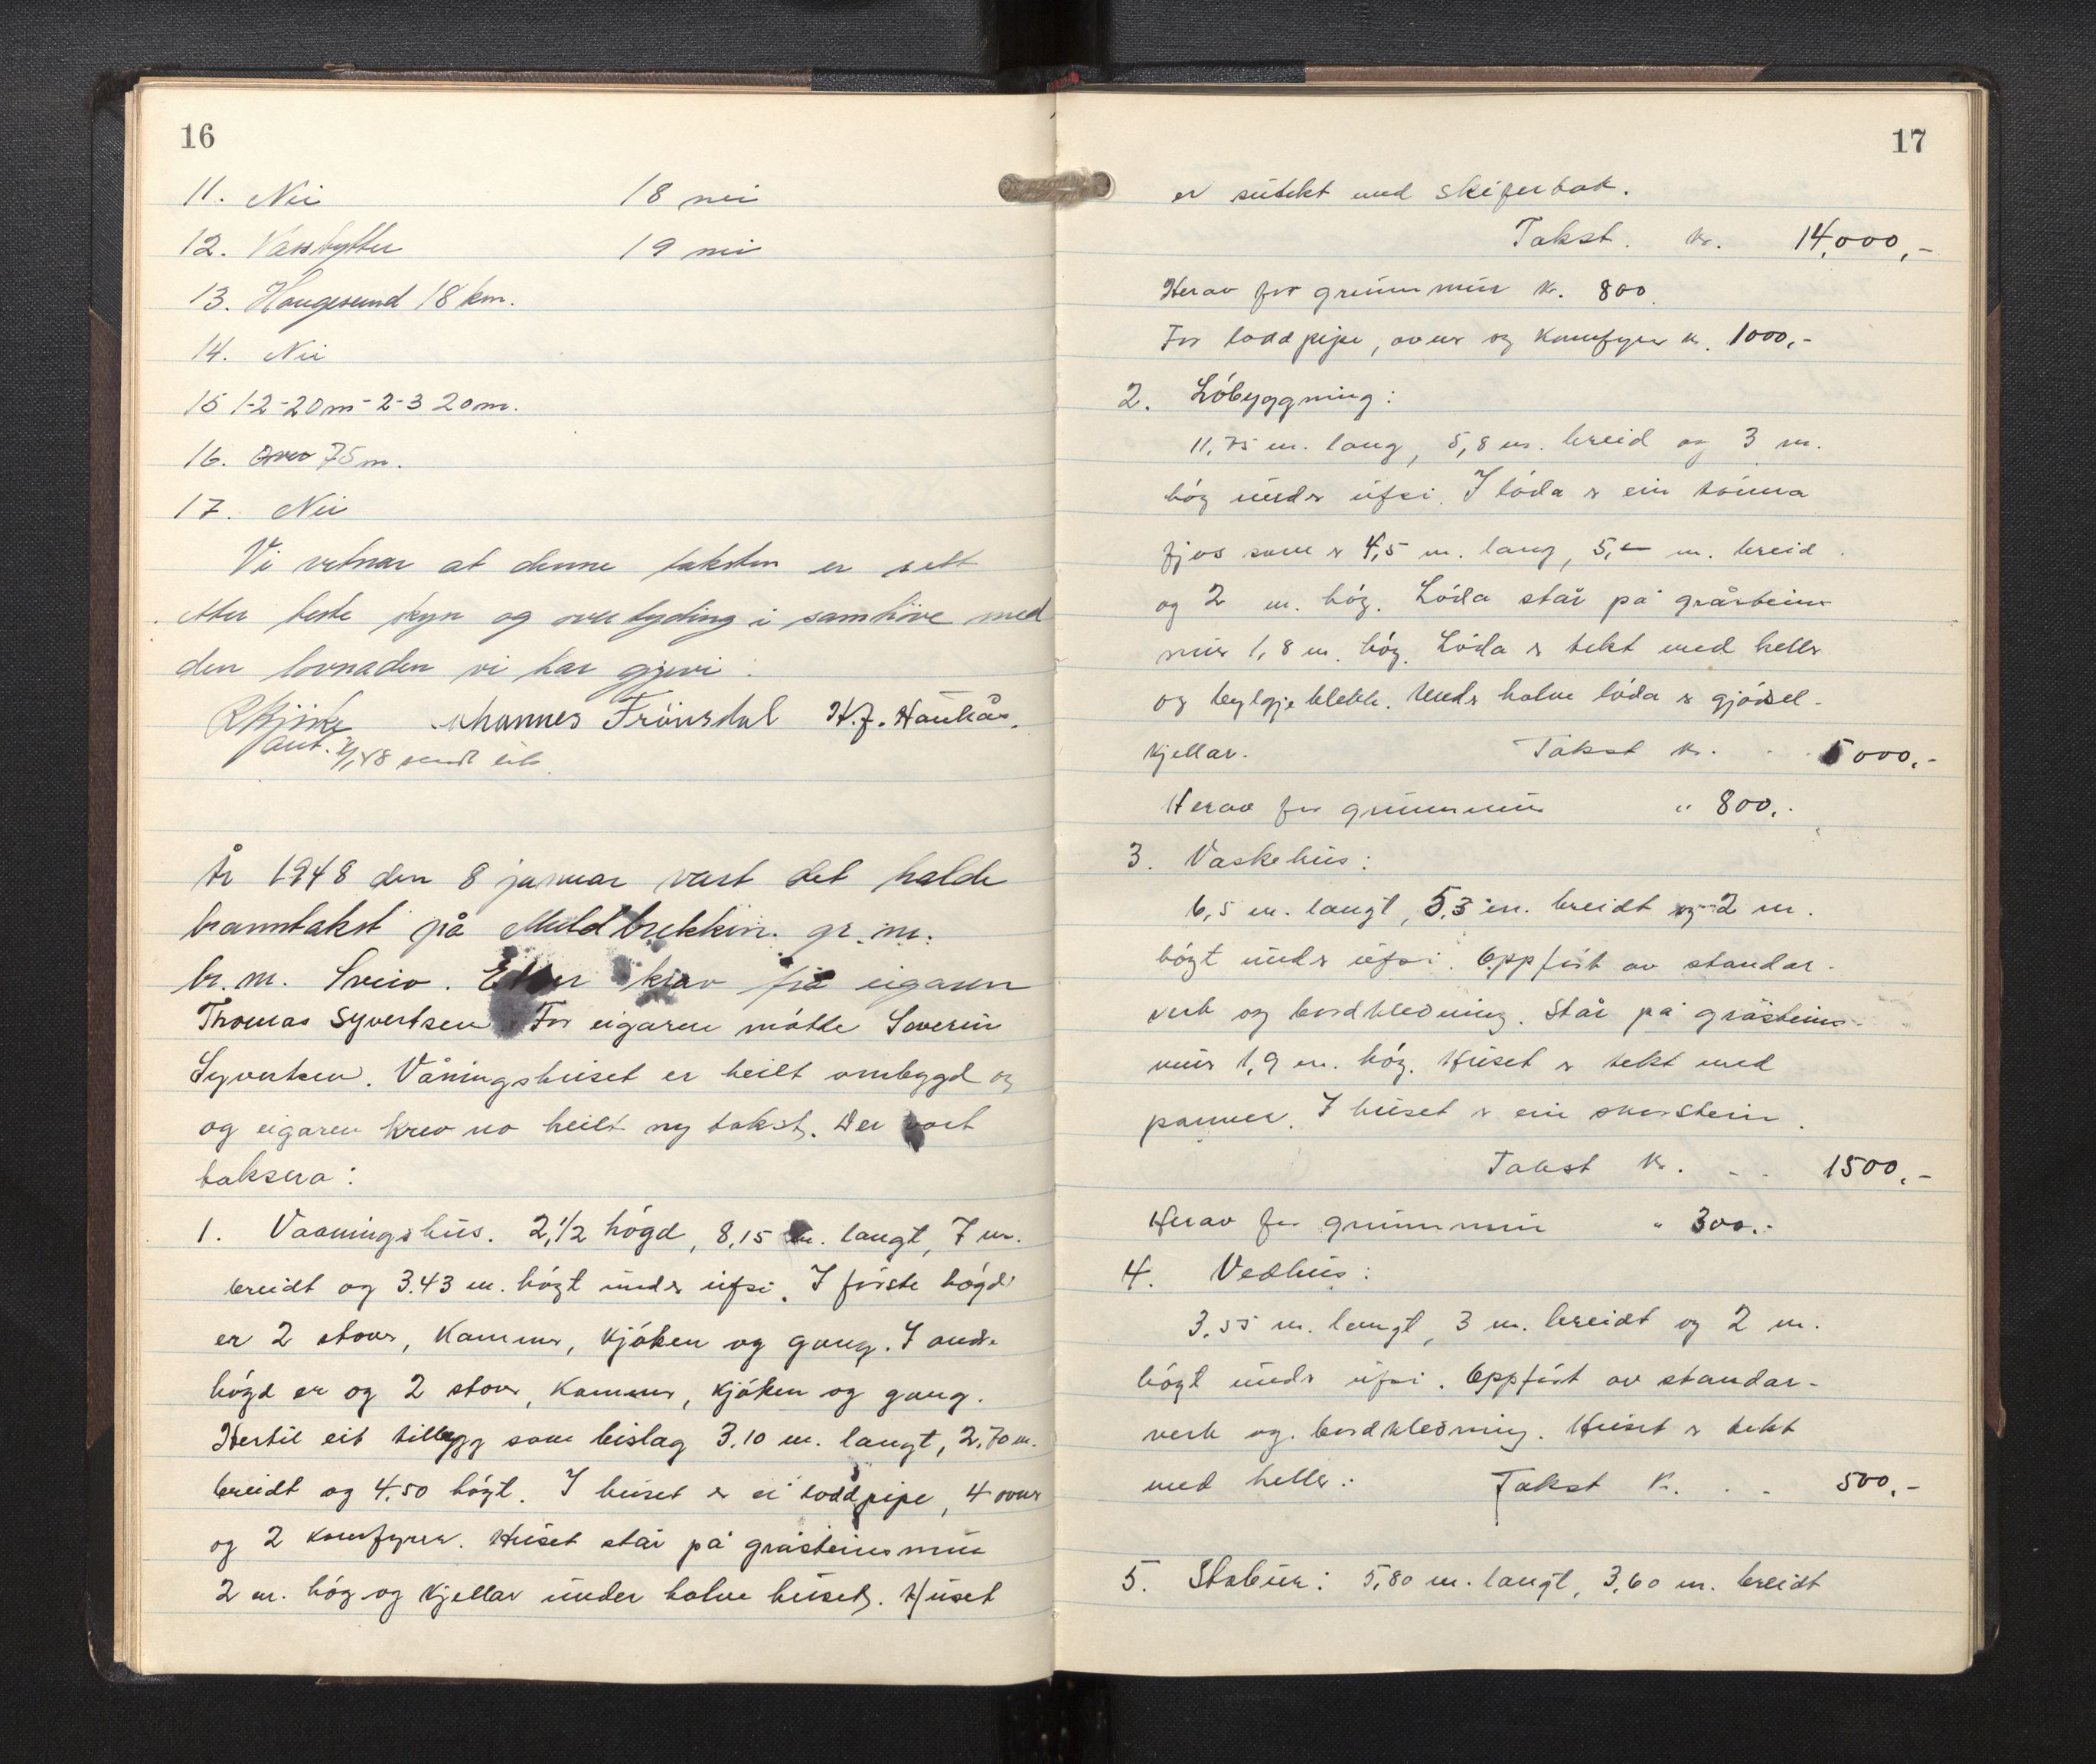 16
11. Nei 18 nei
12. Vassbytter 19 nei
13. Haugesund 18 km.
14. Nei
15 1-2-20m-2-3 20m.
16. over 75 m.
17. Nei
Vi vitnar at denne taksten er sett
etter beste skyn og overtyding i samhöve med
den lovnaden vi har gjevi.
Johannes Frönsdal H.J. Haukås.
aut. 8/1,48 sendt
År 1948 den 8 januar vart det halde
branntakst på Meldbrekken. gr. nr.
br. nr. Sveio. Etter krav frå eigaren
Thomas Syvertsen. For eigaren mötte Severin
Syvertsen. Våningshuset er heilt ombygd og
og eigaren krev no heilt ny takst. Der vart
taksera:
1. Vaaningshus. 2,1/2 högd, 8,15 m. langt, 7 m.
breidt og 3.43 m. högt under ufsi. I förste högd
er 2 stover, kammer, kjöken og gang. I andre
högd er og 2 stover, kammer, kjöken og gang.
Hertil eit tillegg som bislag 3,10 m. langt, 2,70 m.
breidt og 4,50 högt. I huset er ei loddpipe, 4 ovner
og 2 komfyrer. Huset står på gråsteinsmur
2 m. hög og kjellar under halve huset. Huset
17
er sutekt med skifertak.
Takst. kr. 14,000,-
Herav for grunnmur kr. 800.
For loddpipe, ovner og komfyrer kr. 1000,-
2. Löbyggning:
11,75 m. lang, 5,8 m. breid og 3 m.
hög under ufsi. I löda er ein tömra
fjos som er 4,5 m. lang, 5,- m. breid.
og 2 m. hög. Löda står på gråsteins
mur 1,8 m. hög. Löda er tekt med heller
og bylgjeblekk. Under halve löda er gjödsel-
kjellar. Takst kr. 5000,-
Herav for grunnmur " 800,-
3. Vaskehus:
6,5 m. langt, 5,3 m. breidt og 2 m.
högt under ufsi. Oppfört av standar-
verk og bordkledning. Står på gråsteins-
mur 1,9 m. hög. Huset er tekt med
panner. I huset er ein skorstein.
Takst kr. 1500,-
Herav for grunnmur " 300,-
4. Vedhus:
3,55 m. langt, 3 m. breidt og 2 m.
högt under ufsi. Oppfört av standar-
verk og bordkledning. Huset er tekt
med heller. Takst kr. 500,-
5. Stabur: 5,80 m. langt, 3,60 m. breidt